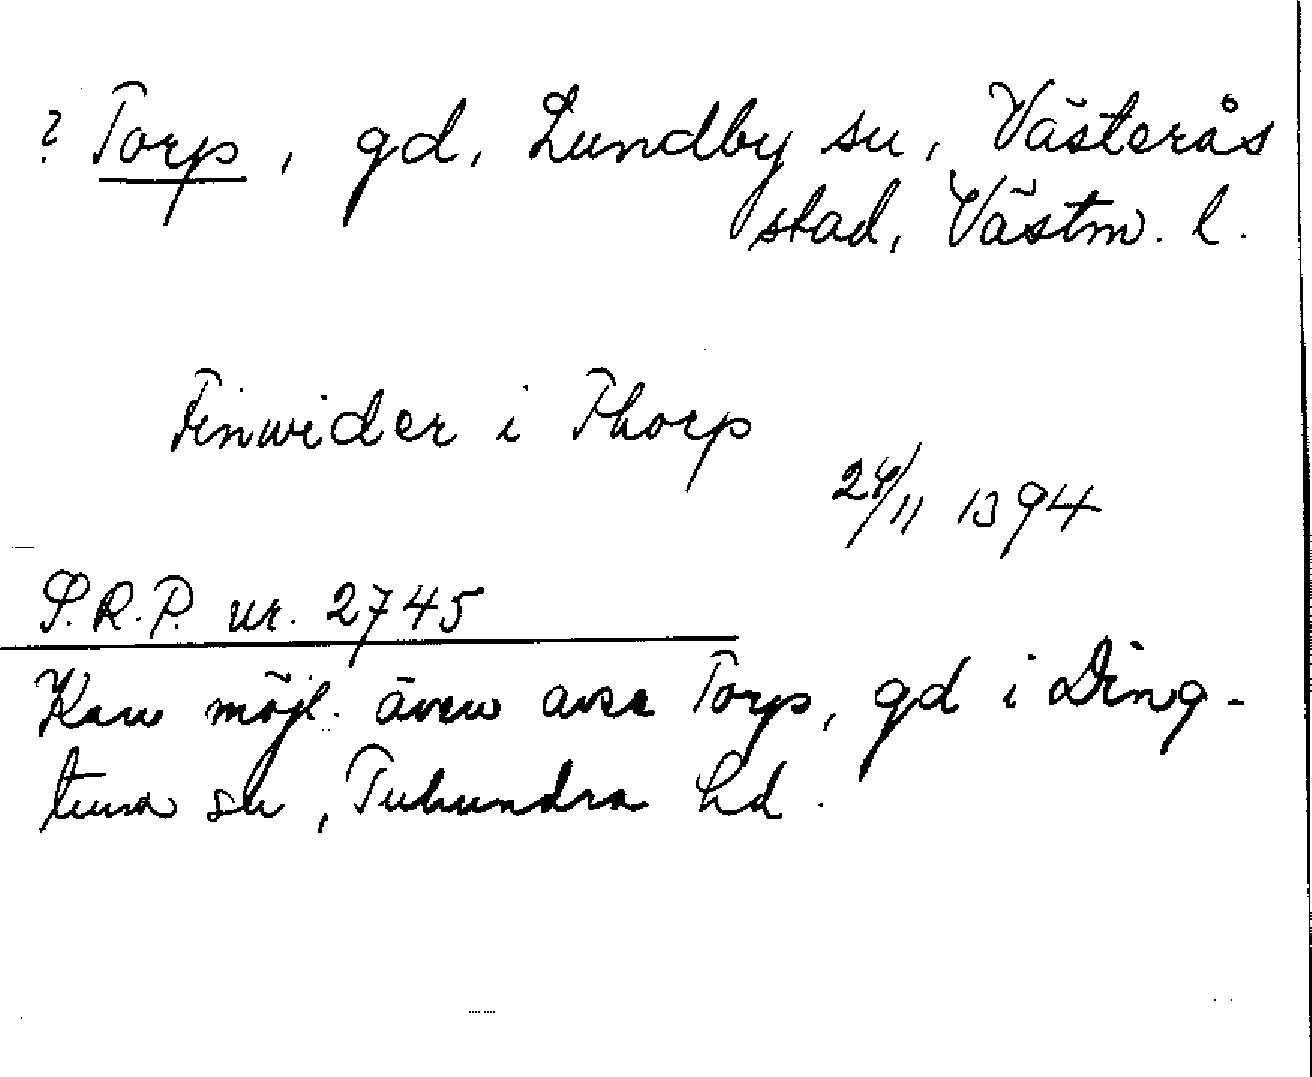 ? Torp, gd, Lundby sn, Västerås
stad, Västm. l.
Finwider i Thorp
24/11 1394
S.R.P. nr. 2745
Kan möjl. även avse Torp, gd i Ding-
tuna sn, Tuhundra hd.